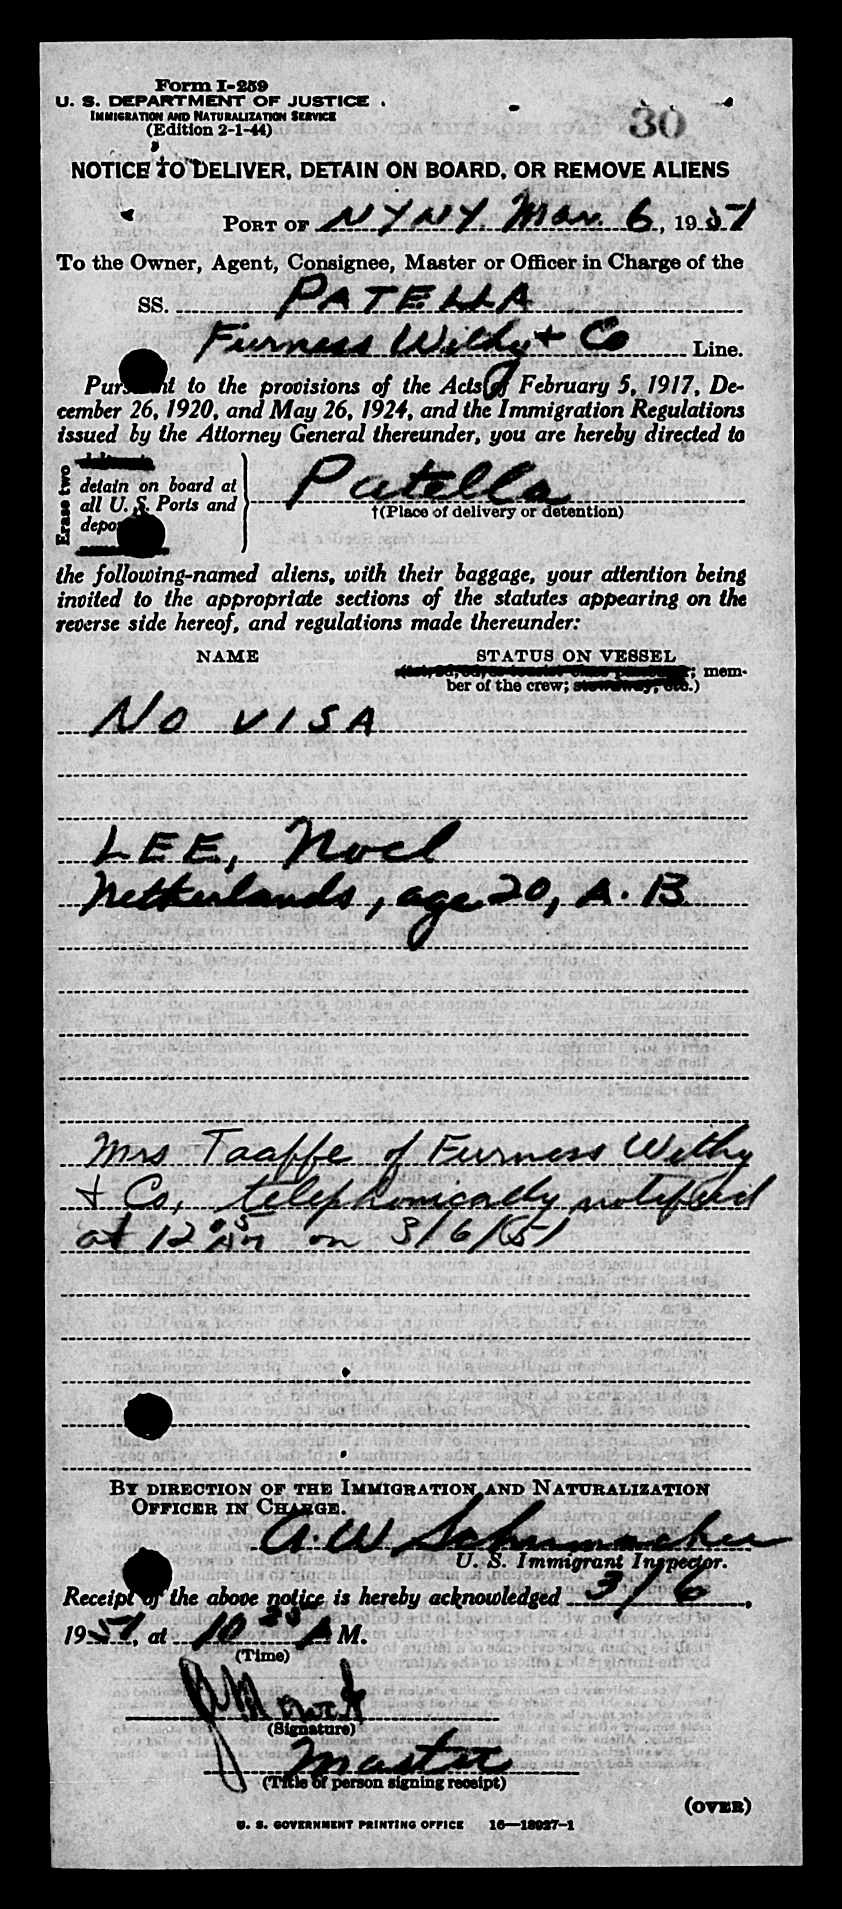 Form I-259
U. S. DEPARTMENT OF JUSTICE
IMMIGRATION AND NATURALIZATION SERVICE
(Edition 2-1-44)
30
NOTICE TO DELIVER, DETAIN ON BOARD, OR REMOVE ALIENS
PORT OF NYNY. Mar. 6, 1951
To the Owner, Agent, Consignee, Master or Officer in Charge of the
SS. PATELLA
Furness Withy + Co Line.
Pursuant to the provisions of the Acts of February 5, 1917, De-
cember 26, 1920, and May 26, 1924, and the Immigration Regulations
issued by the Attorney General thereunder, you are hereby directed to
Erase two
detain on board at
all U. S. Ports and
Patella
†(Place of delivery or detention)
the following-named aliens, with their baggage, your attention being
invited to the appropriate sections of the statutes appearing on the
reverse side hereof, and regulations made thereunder:
NAME STATUS ON VESSEL
; mem-
ber of the crew; stowaway, etc.)
NO VISA
LEE, Noel
Netherlands, age 20, A.B
Mrs Taaffe of Furness Withy
+ Co, telephonically notified
at 12 05 on 3/6/51
BY DIRECTION OF THE IMMIGRATION AND NATURALIZATION
OFFICER IN CHARGE.
A.W Schumacher
U. S. Immigrant Inspector.
Receipt of the above notice is hereby acknowledged 3/6,
1951, at 10 A M.
(Time)
(Signature)
Master
(Title of person signing receipt)
(OVER)
U. S. GOVERNMENT PRINTING OFFICE 16—18027-1